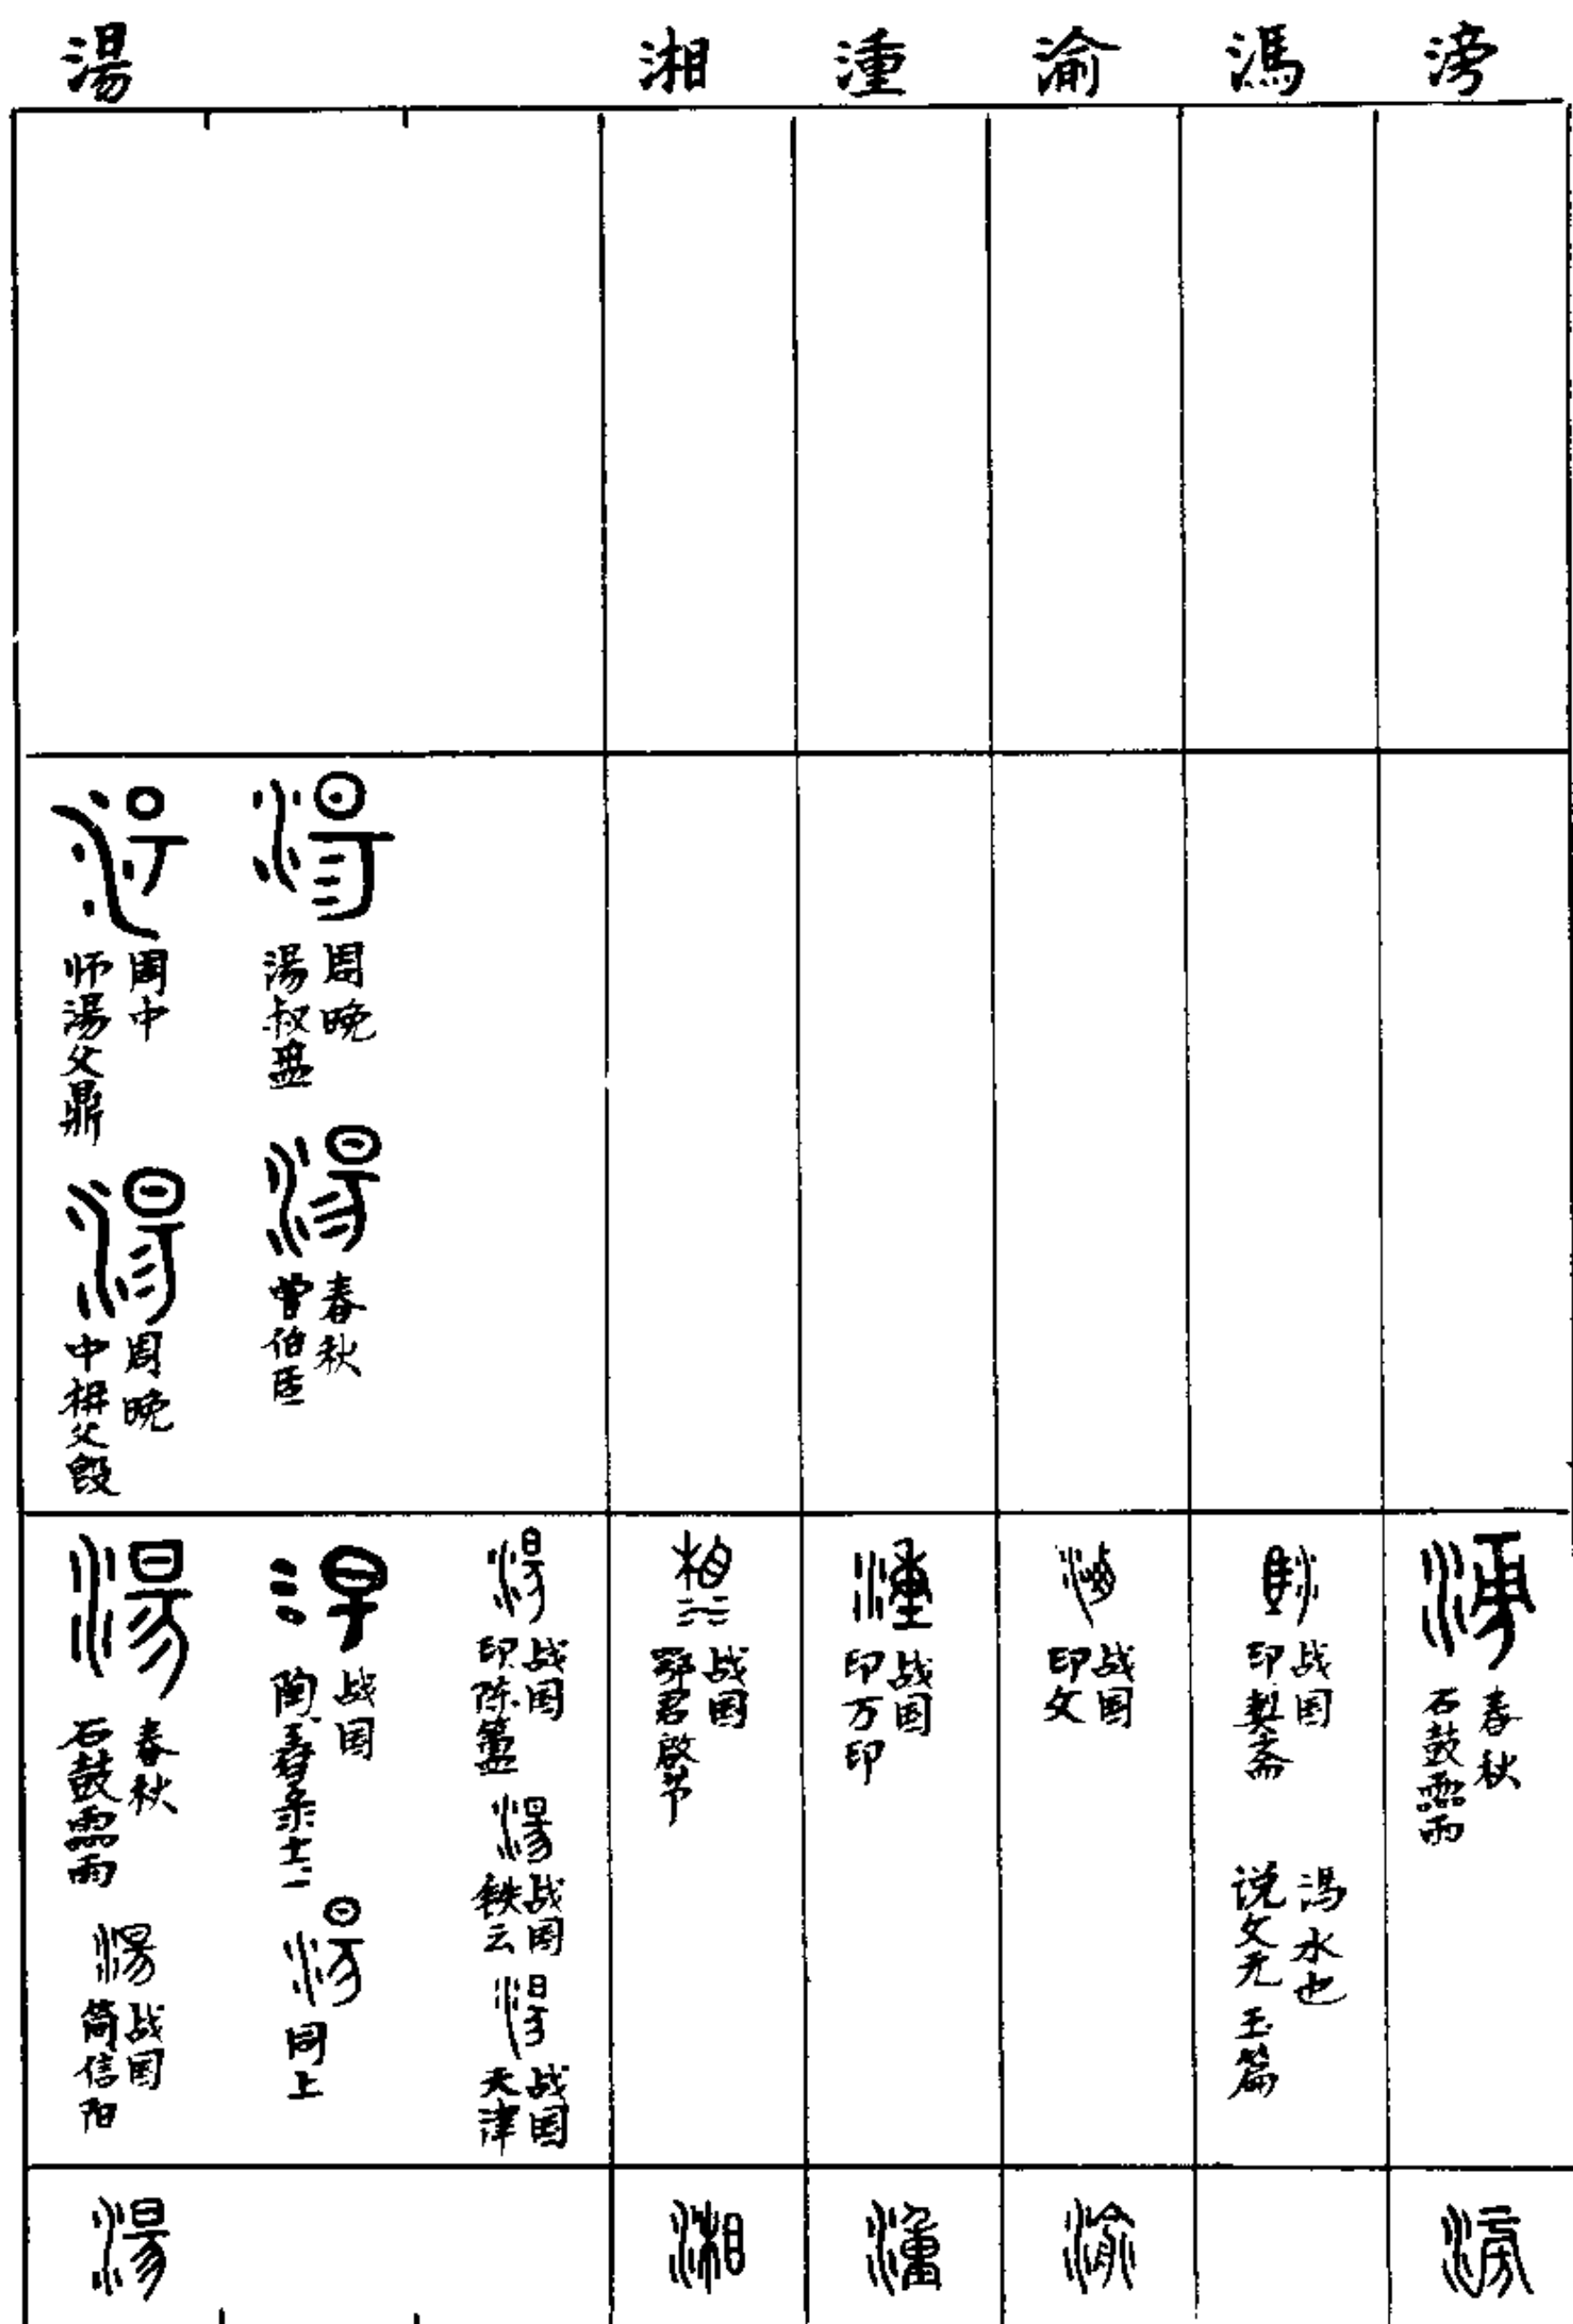 湯 湘 湩 渝 溤 滂
周中
师湯父鼎
周晚
中枏父殷
周晚
湯叔盘
春秋
曾伯𠤳
春秋
石鼓霝雨
战国
简信阳
战国
同上
战国
印陈簠
战国
铁云
战国
天津
战国
鄂君啟节
战国
印万印
战国
印文
战国
印契斋
溤水也
说文无 玉篇
春秋
石鼓霝雨
湯 湘 湩 渝 滂